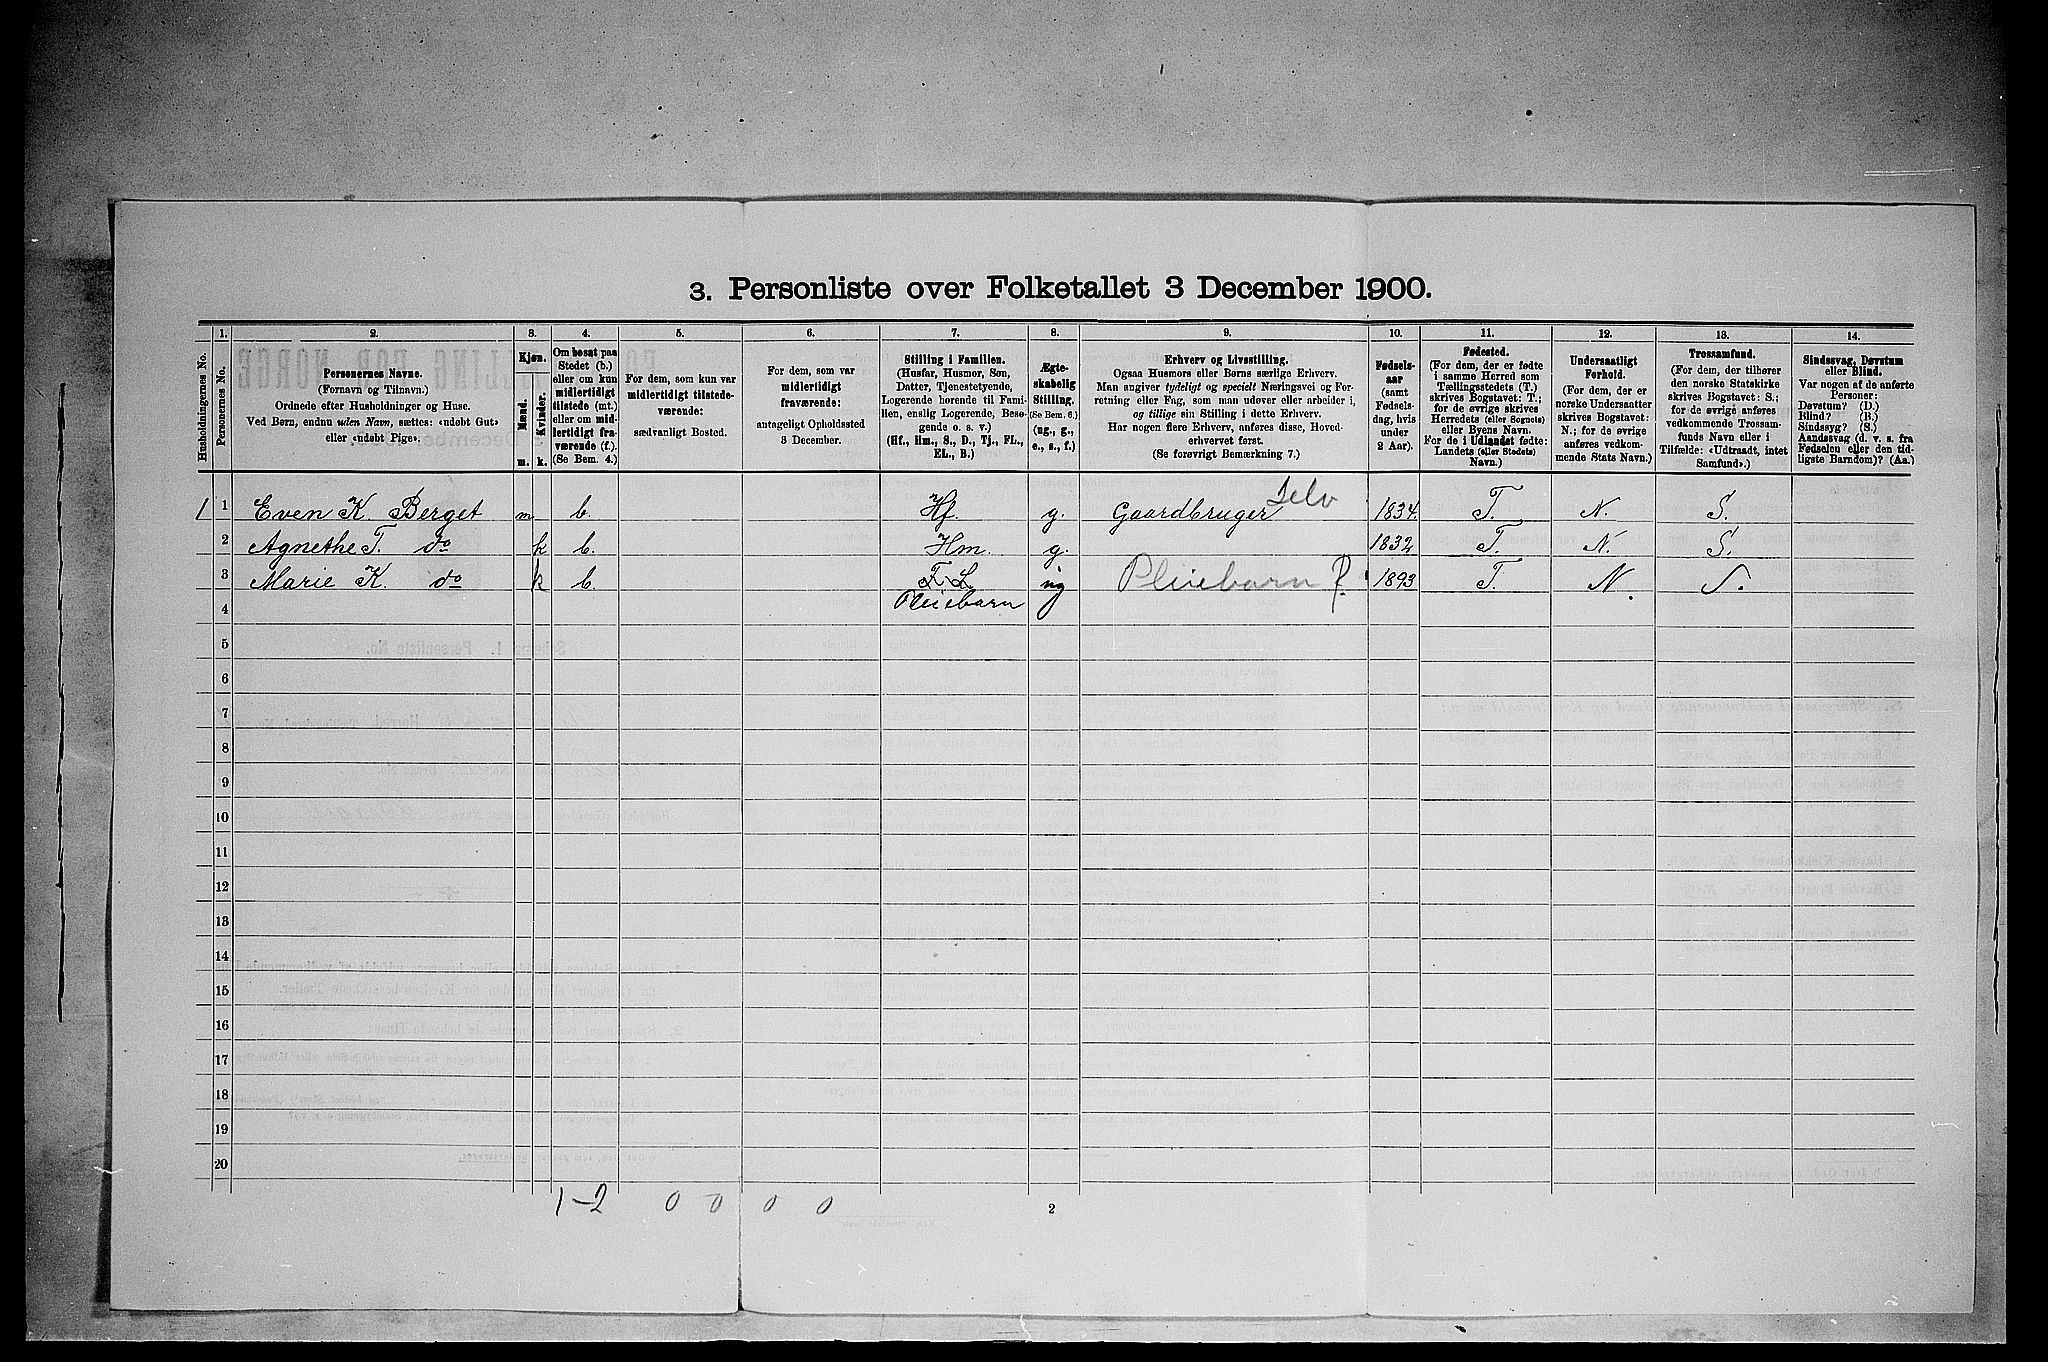 3. Personliste over Folketallet 3 December 1900.
Husholdningernes No.
1.
Personernes No.
2.
Personernes Navne.
(Fornavn og Tilnavn.)
Ordnede efter Husholdninger og Huse.
Ved Børn, endnu uden Navn, sættes: «udøbt Gut»
eller «udøbt Pige».
3.
Kjøn.
Mænd.
Kvinder.
m.
k.
4.
Om bosat paa
Stedet (b.)
eller om kun
midlertidigt
tilstede (mt.)
eller om mid-
lertidigt fra-
værende (f.).
(Se Bem. 4.)
5.
For dem, som kun var
midlertidigt tilstede-
værende:
sædvanligt Bosted.
6.
For dem, som var
midlertidigt
fraværende:
antageligt Opholdssted
3 December.
7.
Stilling i Familien.
(Husfar, Husmor, Søn,
Datter, Tjenestetyende,
Logerende hørende til Fami-
lien, enslig Logerende, Besø-
gende o. s. v.)
(Hf., Hm., S., D., Tj., FL.,
EL., B.)
8.
Ægte-
skabelig
Stilling.
(Se Bem. 6.)
(ug., g.,
e., s., f.)
9.
Erhverv og Livsstilling.
Ogsaa Husmors eller Børns særlige Erhverv.
Man angiver tydeligt og specielt Næringsvei og For-
retning eller Fag, som man udøver eller arbeider i,
og tillige sin Stilling i dette Erhverv.
Har nogen flere Erhverv, anføres disse, Hoved-
erhvervet først.
(Se forøvrigt Bemærkning 7.)
10.
Fødsels-
aar
(samt
Fødsels-
dag, hvis
under
2 Aar).
11.
Fødested.
(For dem, der er fødte
i samme Herred som
Tællingsstedets (T.)
skrives Bogstavet: T.;
for de øvrige skrives
Herredets (eller Sognets)
eller Byens Navn.
For de i Udlandet fødte:
Landets (eller Stedets)
Navn.)
12.
Undersaatligt
Forhold.
(For dem, der er
norske Undersaatter
skrives Bogstavet:
N.; for de øvrige
anføres vedkom-
mende Stats Navn.)
13.
Trossamfund.
(For dem, der tilhører
den norske Statskirke
skrives Bogstavet: S.;
for de øvrige anføres
vedkommende Trossam-
funds Navn eller i
Tilfælde: «Udtraadt, intet
Samfund».)
14.
Sindssvag, Døvstum
eller Blind.
Var nogen af de anførte
Personer:
Døvstum? (D.)
Blind? (B.)
Sindssyg? (S.)
Aandssvag (d. v. s. fra
Fødselen eller den tid-
ligste Barndom)? (Aa.)
1 1 Even K. Berget m b. Hf. g. Gaardbruger Selv 1834. T. N. S.
2 Agnethe T. do k b. Hm. g. 1832 T. N. S.
3 Marie K. do k b. F. L. ug Pleiebarn P. 1893 T. N. S.
4 Pleiebarn
5
6
7
8
9
10
11
12
13
14
15
16
17
18
19
20
1-2 0 0 0 0
2